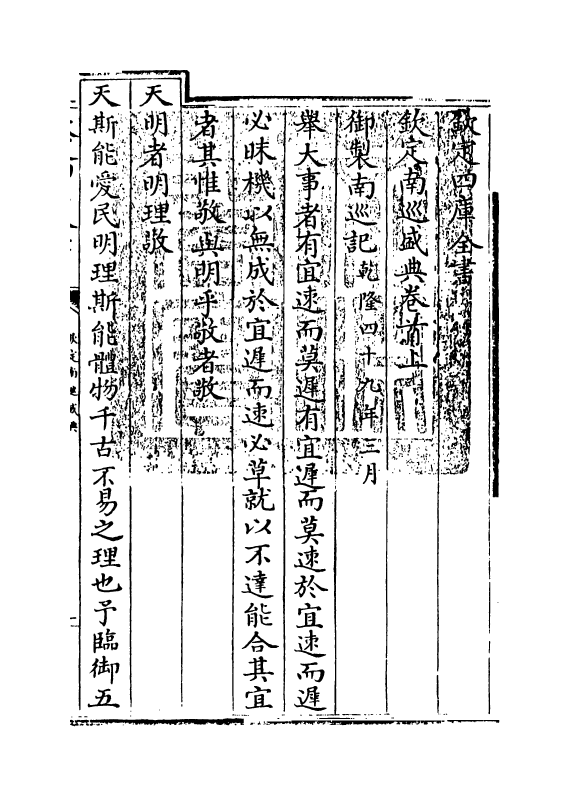 欽定四庫全書
欽定南巡盛典卷首上
御製南巡記乾隆四十九年三月
舉大事者有宜速而莫遲有宜遲而莫速於宜速而遲
必昧機以無成於宜遲而速必草就以不達能合其宜
者其惟敬與明乎敬者敬
天明者明理敬
天斯能愛民明理斯能體物千古不易之理也予臨御五
欽定南巡盛典